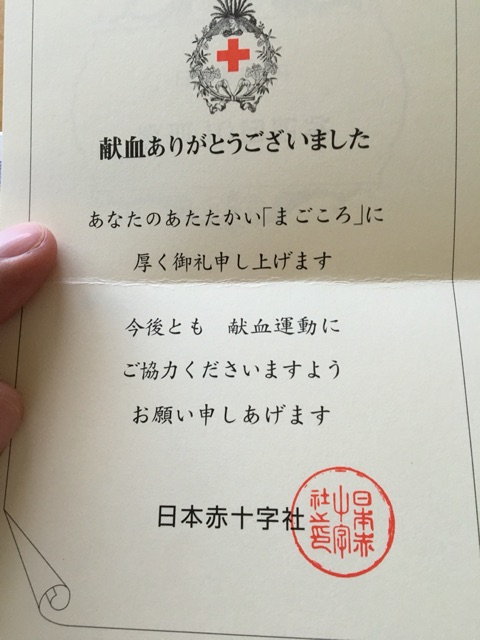 献血ありがとうございました
あなたのあたたかい「まごころ」に
厚く御礼申し上げます
今後とも 献血運動に
ご協力くださいますよう
お願い申しあげます
日本赤十字社
日本赤
十字
社之印